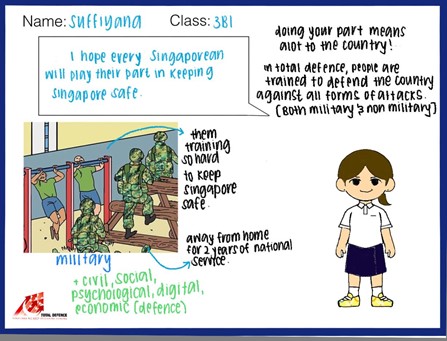 Name: Suffiyana Class: 3B1
I hope every Singaporean
will play their part in keeping
Singapore safe.
doing your part means
alot to the country!
in total defence, people are
trained to defend the country
against all forms of attacks.
(Both military & non military)
them
training
so hard
to keep
singapore
safe.
away from home
for 2 years of national
service.
military
+ civil, social,
psychological, digital,
economic (defence)
TOTAL DEFENCE